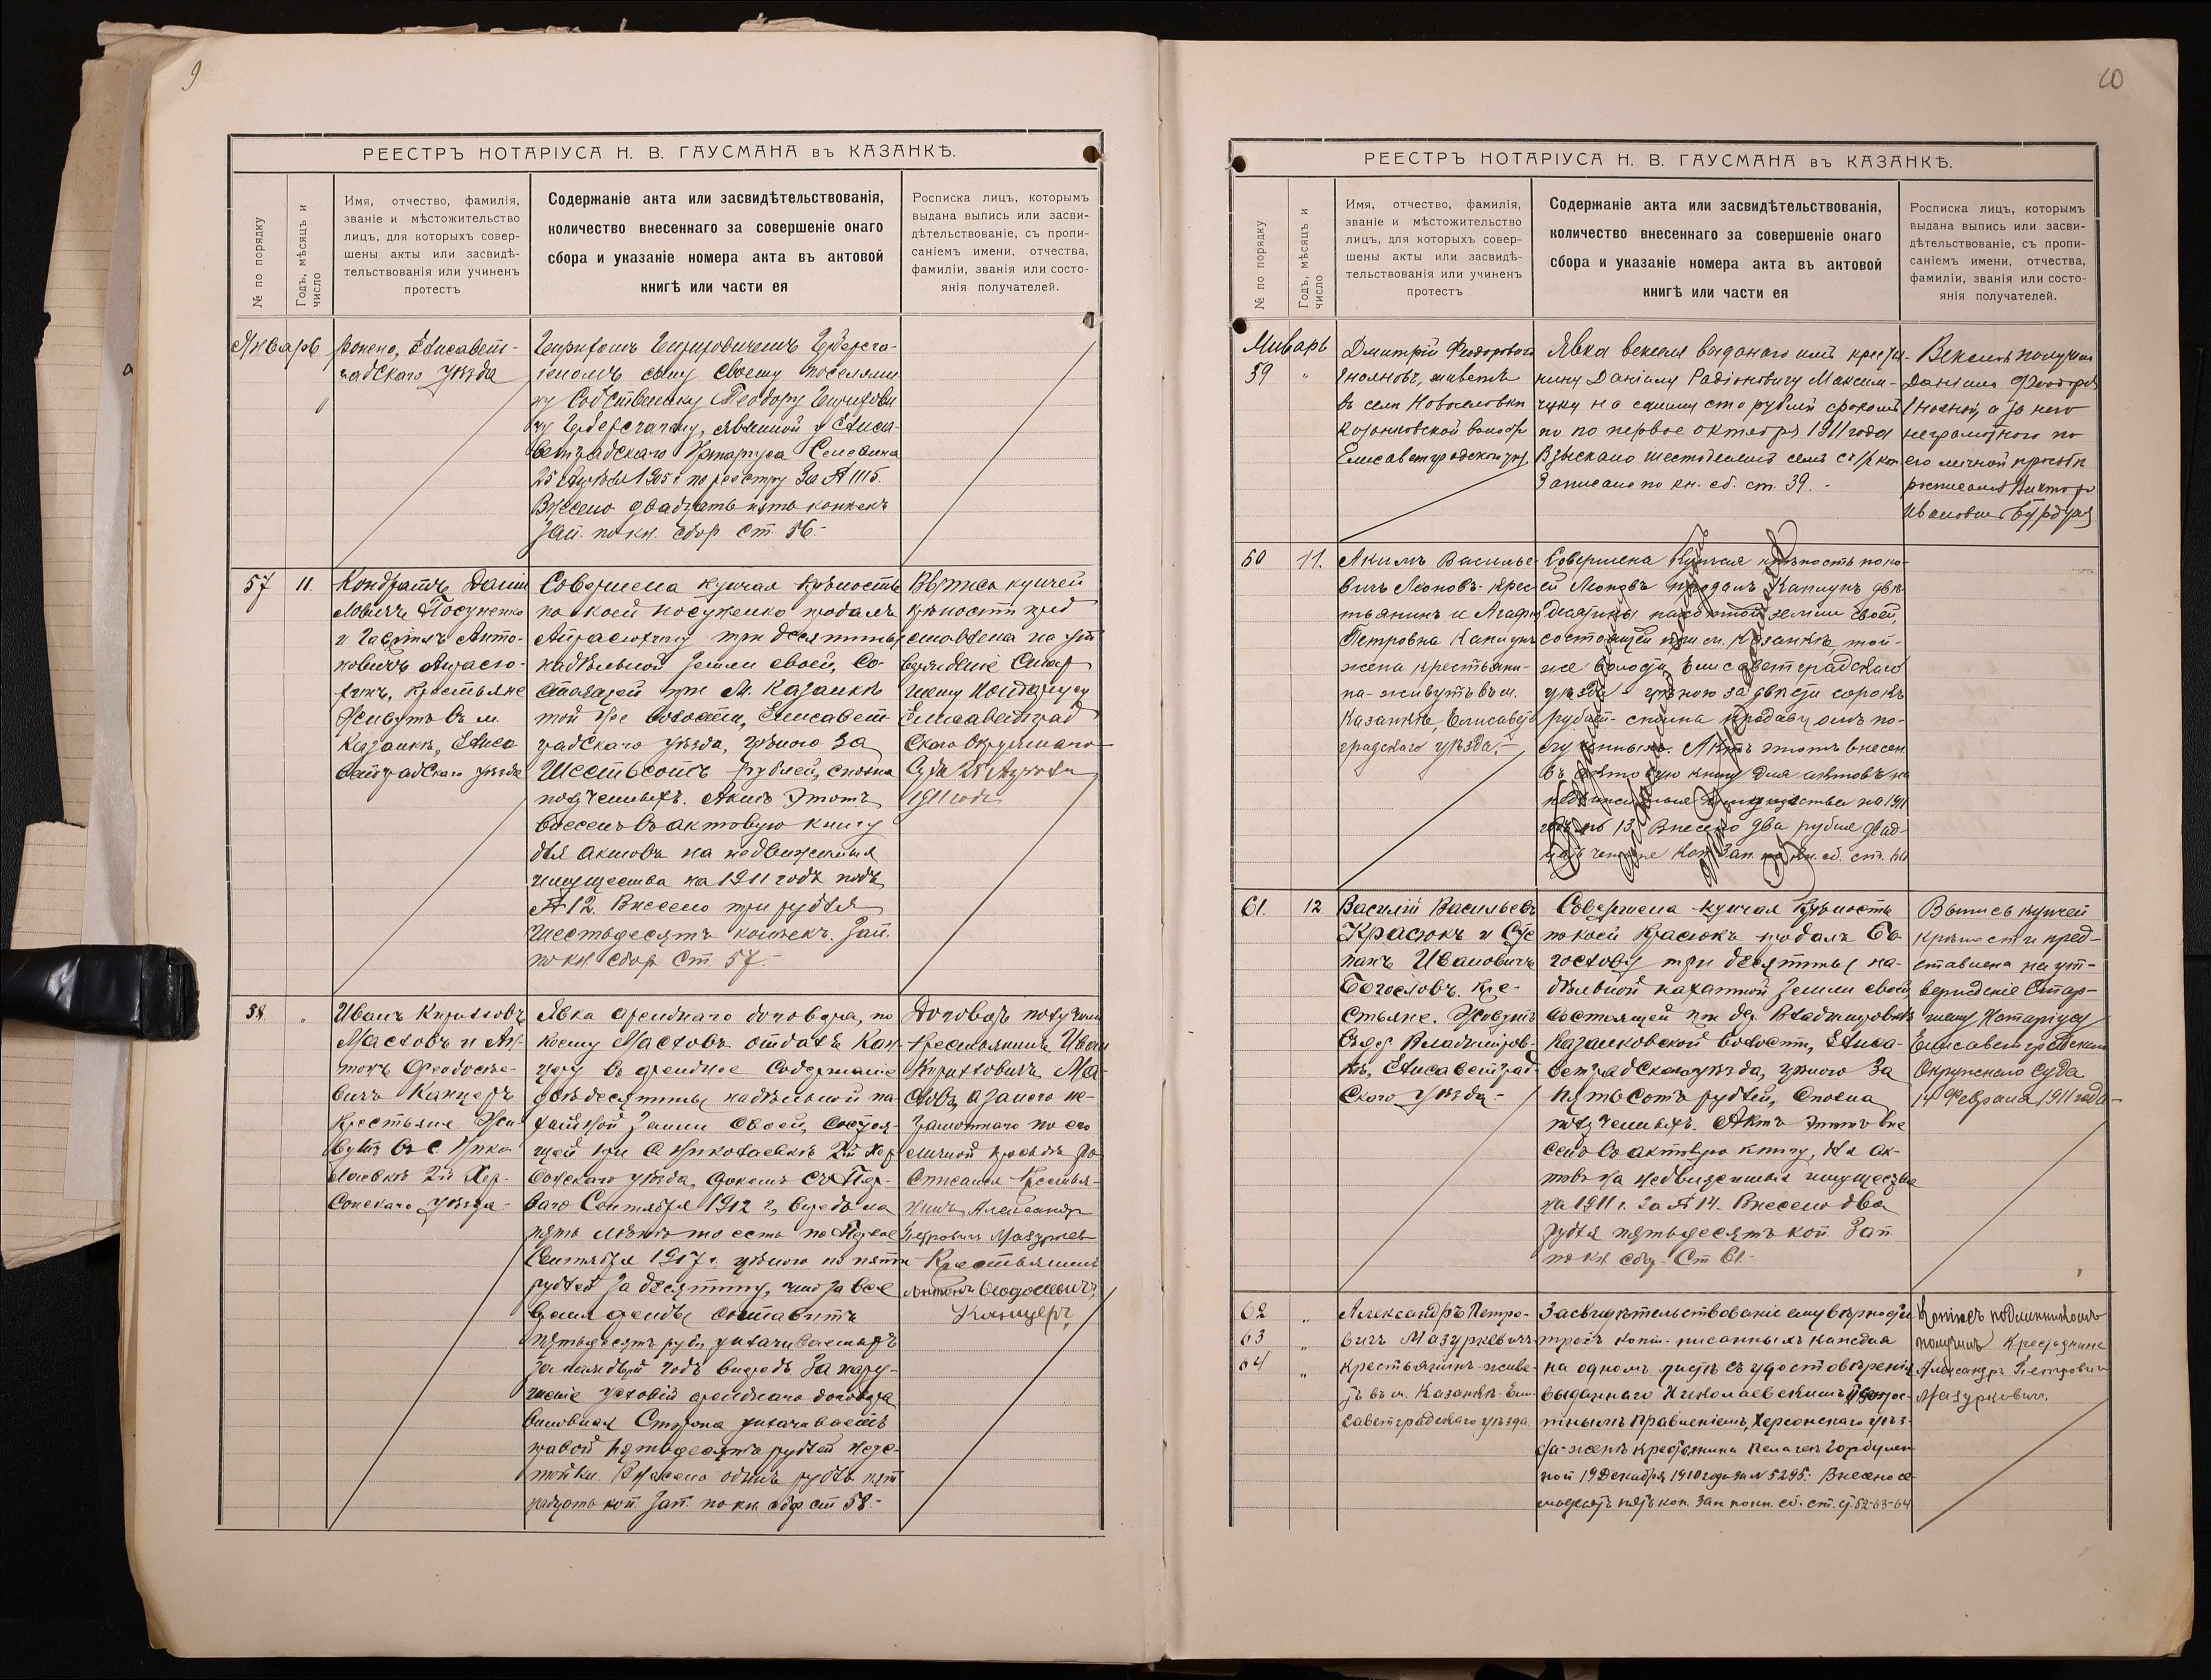 9
РЕЕСТРЪ НОТАРІУСА Н. В. ГАУСМАНА въ КАЗАНКѢ.
№ по порядку
Годъ, мѣсяцъ и
число
Имя, отчество, фамилія,
званіе и мѣстожительство
лицъ, для которыхъ совер-
шены акты или засвидѣ-
тельствованія или учиненъ
протестъ
Содержаніе акта или засвидѣтельствованія,
количество внесеннаго за совершеніе онаго
сбора и указаніе номера акта въ актовой
книгѣ или части ея
Росписка лицъ, которымъ
выдана выпись или засви-
дѣтельствованіе, съ пропи-
саніемъ имени, отчества,
фамиліи, званія или состо-
янія получателей.
Январь
Елисавет-
радскаго уѣзда
сыну своему поселяни
ну Собственнику
явленной у Елиса-
ветградскаго Нотаріуса
25 1905 г. по реестру за № 1115.
Внесено двадцать пять копѣекъ
Зап. по кн. сбор ст. 56.-
57 11.
Кондратъ Дани
ловичъ Посуненко
и Анто-
новичъ
крестьяне
Живутъ въ м.
Казанкѣ, Елиса
ветградскаго уѣзда
Совершена купчая крѣпость
по коей Посуненко продалъ
три десятины
надѣльной земли своей, со-
стоящей при м. Казанкѣ
той же волости, Елисавет-
градскаго уѣзда, цѣною за
Шестьсотъ рублей, сполна
полученныхъ. Актъ этотъ
внесенъ въ актовую книгу
для актовъ на недвижимыя
имущества на 1911 годъ подъ
№ 12. Внесено три рубля
шестьдесятъ копѣекъ. Зап.
по кн. сбор ст. 57.-
Выпись купчей
крѣпости пред
ставлена на утв
вержденіе Стар
шему Нотаріусу
Елисаветград
скаго Окружнаго
Суда 25
1911 года
58 "
Иванъ Кириловъ
Масловъ и Ан-
тонъ Феодосіе-
вичъ Канцеръ
крестьяне Жи-
вутъ въ с. Нико
лаевкѣ 2й Хер-
сонскаго уѣзда-
Явка аренднаго договора, по
коему Масловъ отдалъ Кан-
церу въ арендное содержаніе
десятины надѣльной па-
хатной земли своей, состоя-
щей при с Николаевкѣ 2й Хер
сонскаго уѣзда, срокомъ съ Пер-
ваго Сентября 1912 г, впредь на
пять лѣтъ то есть по Первое
Сентября 1917 г. цѣною по пяти
рублей за десятину, что за все
время аренды составитъ
пятьдесятъ руб, уплачиваемыхъ
за каждый годъ впередъ. За нару-
шеніе условій аренднаго договора
виновная Сторона уплачиваетъ
правой пятьдесятъ рублей неус-
тойки. Внесено одинъ рубль пят
надцать коп. Зап. по кн. сбор ст 58.-
Договоръ получили
крестьянинъ Иванъ
Кириловичъ Ма-
словъ, а за него не-
грамотнаго по его
личной просьбѣ ро
списался крестья-
нинъ Александръ
Петровичъ Мазуркев
Крестьянинъ
Антонъ Феодосіевичъ
Канцеръ
10
РЕЕСТРЪ НОТАРІУСА Н. В. ГАУСМАНА въ КАЗАНКѢ.
№ по порядку
Годъ, мѣсяцъ и
число
Имя, отчество, фамилія,
званіе и мѣстожительство
лицъ, для которыхъ совер-
шены акты или засвидѣ-
тельствованія или учиненъ
протестъ
Содержаніе акта или засвидѣтельствованія,
количество внесеннаго за совершеніе онаго
сбора и указаніе номера акта въ актовой
книгѣ или части ея
Росписка лицъ, которымъ
выдана выпись или засви-
дѣтельствованіе, съ пропи-
саніемъ имени, отчества,
фамиліи, званія или состо-
янія получателей.
Январь
59 "
Дмитрій Феодоровичъ
живетъ
въ селѣ Новоселовки
Казанковской волост
Елисаветградскаго уѣз
Явка векселя выданаго имъ крестья-
нину Даніилу Радіоновичу Максим-
чуку на сумму сто рублей срокомъ
по по первое октября 1911 года
Взыскано шестьдесятъ семь с 1/2 коп
Записано по кн. сб. ст. 39.-
Вексель получилъ
а за него
неграмотного по
его личной просьбѣ
росписался Викторъ
Ивановичъ
60 11.
Акимъ Василье-
вичъ Леоновъ- крес-
тьянинъ и Агафія
Петровна Капицунъ
жена крестьяни-
на- живутъ въ м.
Казанкѣ, Елисавет
градскаго уѣзда.-
Совершена купчая крѣпость по ко-
ей Леоновъ продалъ Капицунъ двѣ
десятины пахотной земли своей,
состоящей при м. Казанкѣ, той-
же волости, Елисаветградскаго
уѣзда- цѣною за двѣсти сорокъ
рублей- сполна продавцомъ по-
лученныхъ. Актъ этотъ внесен
въ актовую книгу для актовъ на
недвижимыя имущества на 1911
годъ № 13. Внесено два рубля двад-
цать четыре коп. Зап. по кн. сб. ст. 60
61. 12
Василій Васильевъ
Красюкъ и Сте
панъ Ивановичъ
Богословъ. Кре-
стьяне. Живутъ
въ дер. Владиміров-
кѣ, Елисаветград-
скаго уѣзда-
Совершена купчая крѣпость
по коей Красюкъ продалъ Бо-
гослову три десятины на-
дѣльной пахатной земли своей
состоящей при дер. Владиміровкѣ
Казанковской волости, Елиса-
ветградскаго уѣзда, цѣною за
пятьсотъ рублей, сполна
полученныхъ. Актъ этотъ вне
сенъ въ актовую книгу, для ак-
товъ на недвижимыя имущества
на 1911 г. за № 14. Внесено два
рубля пятьдесятъ коп. Зап.
по кн. сбор. Ст 61.
Выпись купчей
крѣпости пред-
ставлена на ут-
вержденіе Стар-
шему Нотаріусу
Елисаветградскаго
Окружнаго Суда
14 Февраля 1911 года
62 "
63 "
64 "
Александръ Петро-
вичъ Мазуркевичъ
крестьянинъ- живе-
тъ въ м. Казанкѣ- Ели-
саветградскаго уѣзда.
Засвидѣтельствованіе ему вѣрности
трехъ копій- писанныхъ каждая
на одномъ листѣ съ удостовѣренія
выданнаго Николаевскимъ 2 Волос-
тнымъ Правленіемъ, Херсонскаго уѣз-
да- женѣ крестьянина Пелагеи Горбулен
ной 19 Декабря 1910 года за № 5295. Внесено се-
мьдесятъ пять коп. Зап. по кн. сб. ст. ст. 62-63-64
Копіи съ подлинникомъ
получилъ Крестьянинъ
Александръ Петровичъ
Мазуркевичъ.